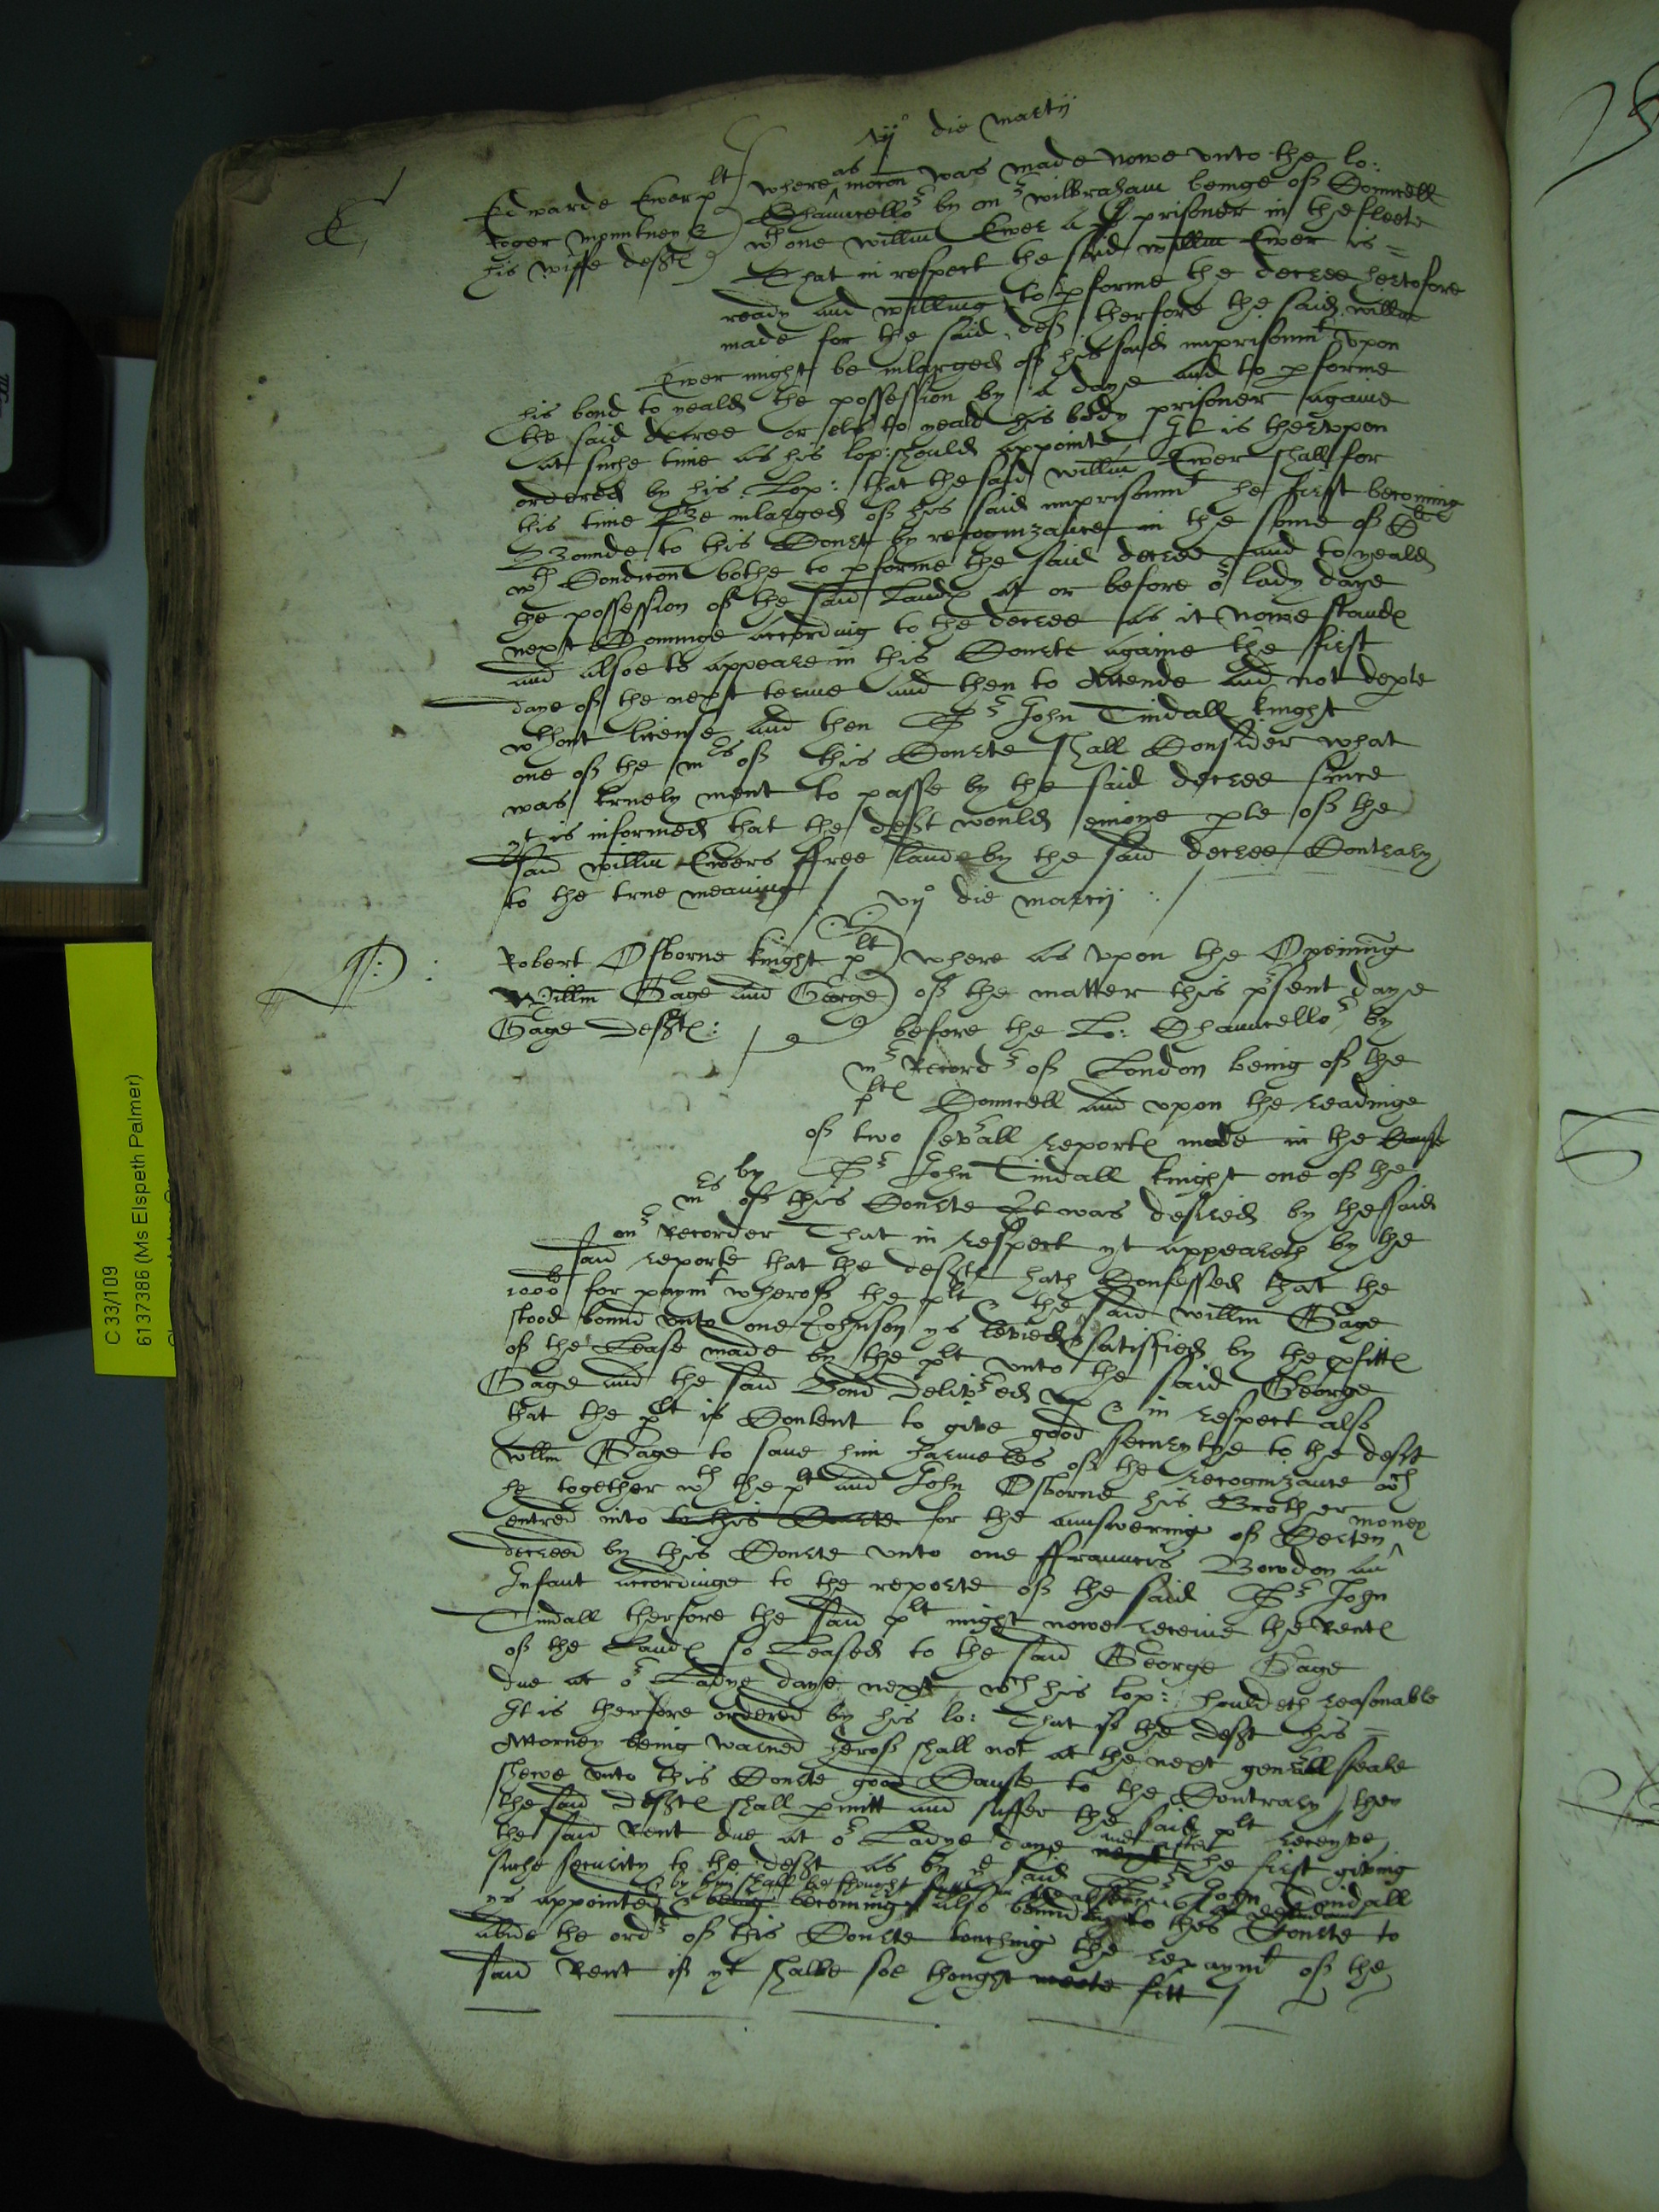 vij° die marcij
E
Edwarde Ewer plt where^as mocon was made nowe vnto the lo:
Roger Mountney & Chauncellor by mr wilbraham beinge of Councell
his wiffe deftes wth one willm Ewer a prisoner in the fleete
That in respect the said willm Ewer is =
ready and willing to pforme the decree hertofore
made for the said deft therfore the said willm
Ewer might be inlarged of his said imprisonmt vpon
his bond to yeald the possession by a daye and to pforme
the said decree or els to yeald his body prisoner againe
at suche time as his lop: should appointe It is thervpon
ordered by his Lop: that the said willm Ewer shall for
this time be inlarged of his said imprisonmt he first becoming
Bounde to this Court by recognizance in the some of
wth Condicon bothe to pforme the said decree and to yeald
the possession of the said Landes at or before or lady daye
next Cominge according to the decree as it nowe standes
and alsoe to appeare in this Courte againe the first
daye of the next terme and then to attende and not depte
wthout license and then Sr John Tindall knight
one of the mrs of this Courte shall Consider what
was truely ment to passe by the said decree since
yt is informed that the deft would enioye pte of the
said willm Ewers ffree lande by the said decree Contrary
to the true meaning
vij° die marcij
Robert Osborne knight plt where as vpon the Opening
Willm Gage and George of the matter this psent daye
Gage Deftes: before the Lo: Chauncellor by
mr Recordr of London being of the
pltes Councell and vpon the readinge
of two seuall reportes made in the Cause
by Sr John Tindall knight one of the
mrs of this Courte It was desired by the said
mr Recorder That in respect yt appeareth by the
said reporte that the deftes hath Confessed that the
1000li for paymt wherof the plt & the said willm Gage
stood bound vnto one Johnson ys levied & satisfied by the pfittes
of the Lease made by the plt vnto the said George
Gage and the said Bond deliued vp & in respect also
that the plt is Content to give good securytye to the deft
willm Gage to saue him harmeles of the recognizance wch
he together wth the plt and John Osborne his Brother
entred into to this Courte for the aunswering of Certen ^money
decreed by this Courte vnto one ffrauncis Bowdon an
Infant accordinge to the reporte of the said Sr John
Tindall therfore the said plt might nowe receiue the Rentes
of the Landes so Leased to the said George Gage
due at or Ladye daye next wch his lop: houldeth reasonable
It is therfore ordered by his lo: That if the deft his =
Attorney being warned herof shall not at the next genall seale
shewe vnto this Courte good Cause to the Contrary then
the said deftes shall pmitt and suffer the said plt receyve
the said Rent due at or Ladye daye next he first giving
suche security to the deft as by ye said Sr John Tindall
ys appointed & being becoming also bound to this Courte to
abide the ordr of this Courte touching the repaymt of the
said Rent if yt shalbe soe thought meete fitt
C 33/109
6137386 (Ms Elspeth Palmer)